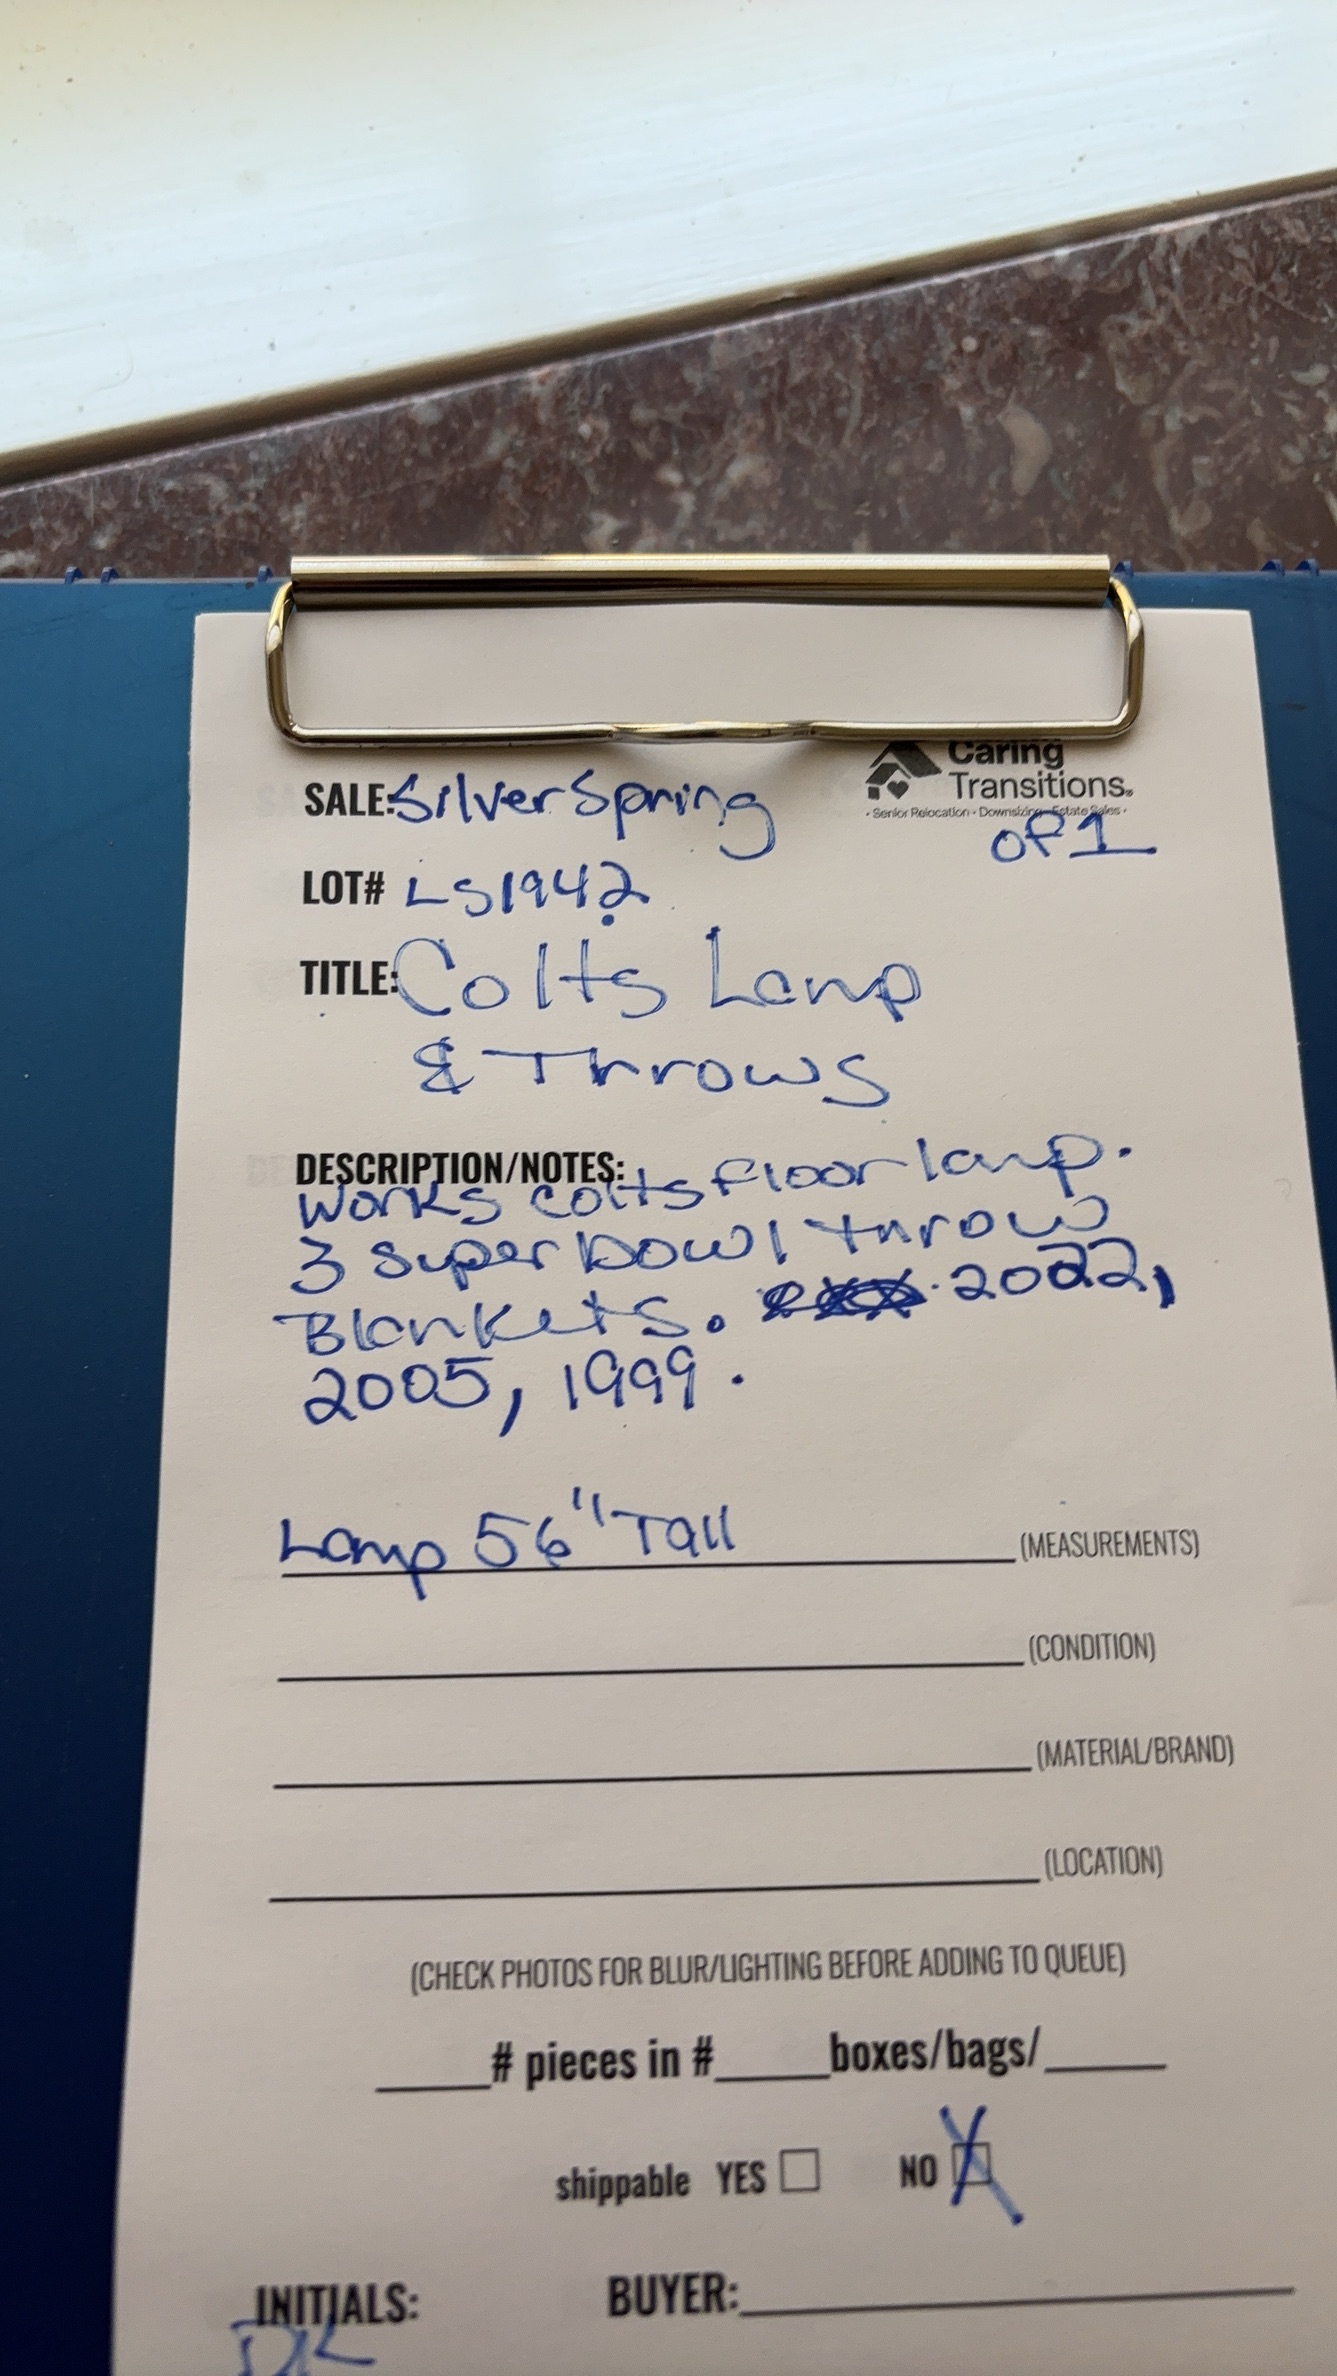 Caring
Transitions®
• Senior Relocation • Downsizing • Estate Sales •
SALE: Silver Spring
of 1
LOT# LS1942
TITLE: Colts Lamp
& Throws
DESCRIPTION/NOTES:
Works Colts floor lamp.
3 Super bowl throw
Blankets. 2022,
2005, 1999.
Lamp 56" Tall (MEASUREMENTS)
(CONDITION)
(MATERIAL/BRAND)
(LOCATION)
(CHECK PHOTOS FOR BLUR/LIGHTING BEFORE ADDING TO QUEUE)
# pieces in # boxes/bags/
shippable YES ☐ NO ☒
INITIALS: BUYER:
DK